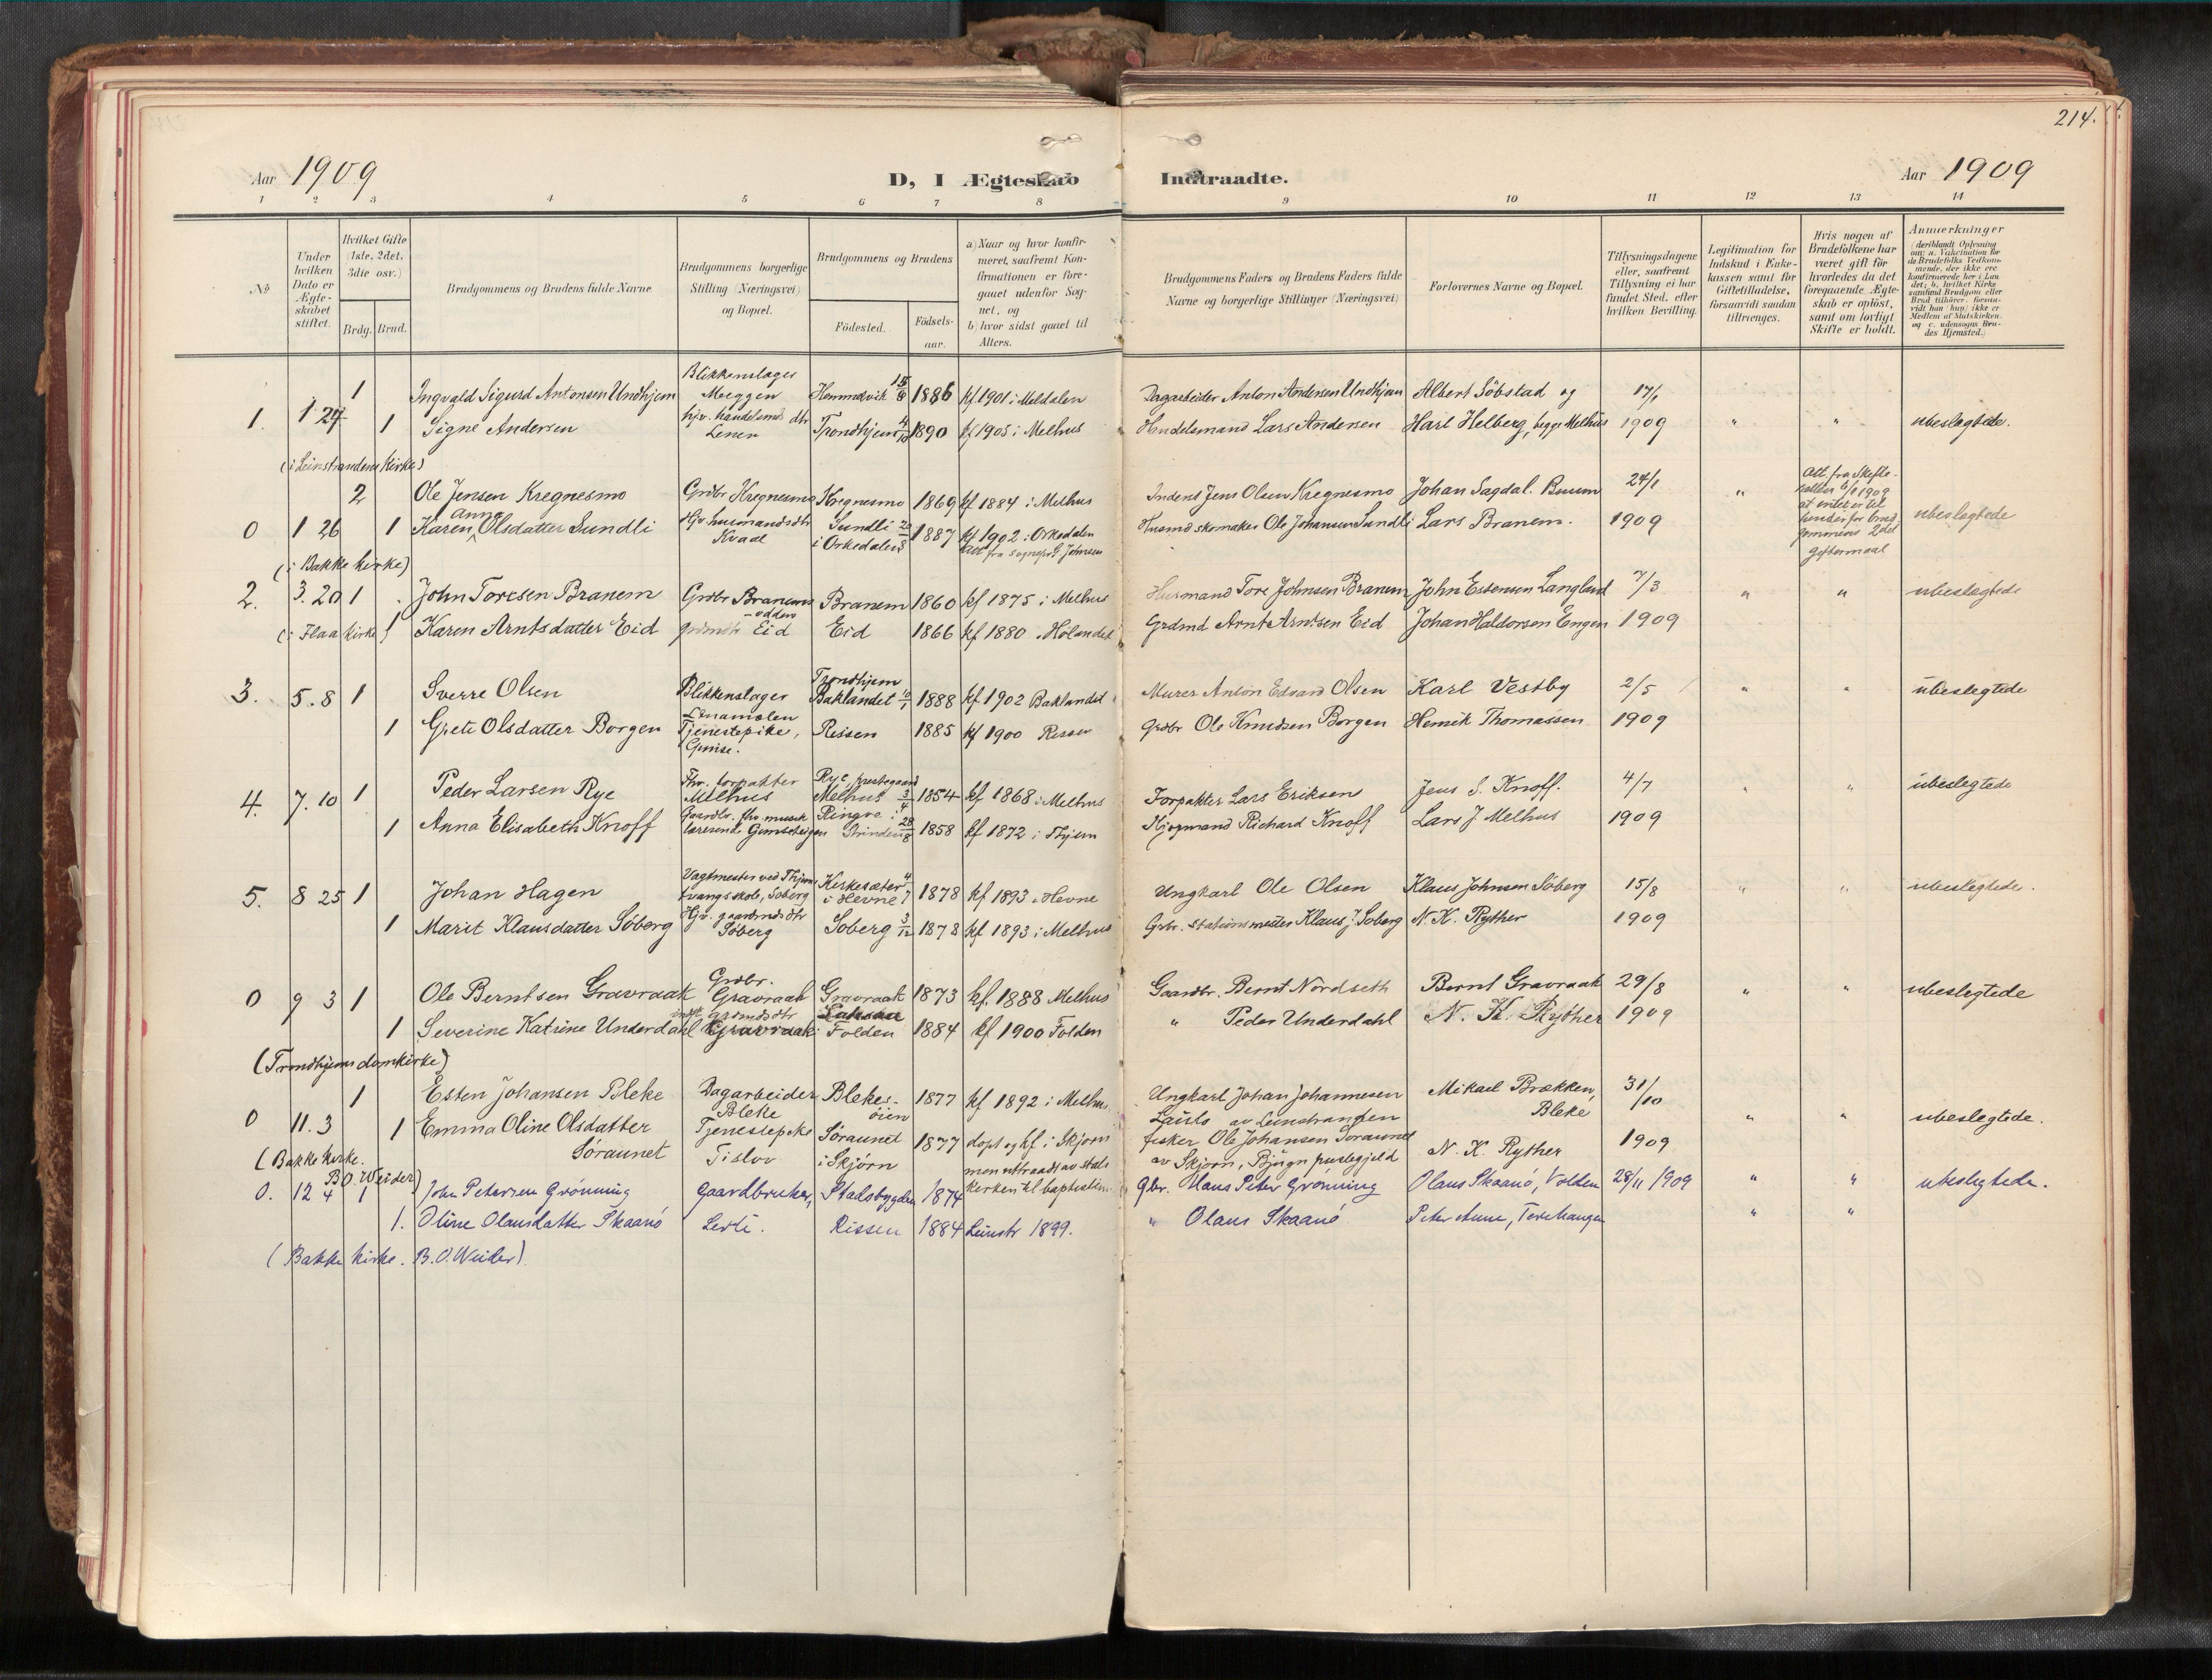 214.
Aar 1909
D, I Ægteskab
Indtraadte.
Aar 1909
1 2 3 4 5 6 7 8 9 10 11 12 13 14
No
Under hvilken Dato er Ægteskabet stiftet.
Hvilket Gifte (1ste, 2det, 3die osv.)
Brdg. Brud.
Brudgommens og Brudens fulde Navne
Brudgommens borgerlige Stilling (Næringsvei) og Bopæl.
Brudgommens og Brudens
Fødested.
Fødsels-aar.
a) Naar og hvor konfirmeret, saafremt Konfirmationen er foregaaet udenfor Sognet, og
b) hvor sidst gaaet til Alters.
Brudgommens Faders og Brudens Faders fulde Navne og borgerlige Stillinger (Næringsvei)
Forlovernes Navne og Bopæl.
Tillysningsdagene eller, saafremt Tillysning ei har fundet Sted, efter hvilken Bevilling.
Legitimation for Indskud i Enkekassen samt for Giftetilladelse, forsaavidt saadan tiltrænges.
Hvis nogen af Brudefolkene har været gift før hvorledes da det foregaaende Ægteskab er opløst, samt om lovligt Skifte er holdt.
Anmærkninger (deriblandt Oplysning om: a. Vaccination for de Brudefolks Vedkommende, der ikke ere konfirmerede her i Landet; b. hvilket Kirkesamfund Brudgom eller Brud tilhører, forsaavidt han (hun) ikke er Medlem af Statskirken, og c. udensogns Brudes Hjemsted.)
1. 1 27 1 Ingvald Sigurd Antonsen Undhjem Blikkenslager Moeggen Hemmdvik 15/8 1886 kf 1901 i Meldalen Dagarbeider Anton Andersen Undhjem Albert Söbstad og 17/1
1 Signe Andersen hjv. handelsmds dtr Lenen Trondhjem 4/10 1890 kf 1905 i Melhus Handelsmand Lars Andersen Karl Helberg, begge Melhus 1909 " " ubeslegtede.
(i Leinstrandens Kirke)
2 Ole Jensen Kregnesmo Grdbr Kregnesmo Kregnesmo 1869 kf 1884 i Melhus Inderst Jens Olsen Kregnesmo Johan Sagdal. Buum 24/1 " Att. fra Skifte-
0 1 26 1 Karen Anna Olsdatter Sundli Hjv. husmandsdtr Kvaal Sundli i Orkedalen 1887 kf 1902 i Orkedalen Att fra sognepr. G. Johnsen Husmd skomaker Ole Johansen Sundli Lars Branem. 1909 retten 6/1 1909 at intet er til hinder for brudgommens 2det giftermaal ubeslegtede
(i Bakke kirke)
2. 3. 20 1 John Toresen Branem Grdbr Branems-odden Branem 1860 kf 1875 i Melhus Husmand Tore Johnsen Branem John Estensen Langland 7/3 " " ubeslegtede
(i Flaa kirke) 1 Karen Arntsdatter Eid grdmdtr Eid Eid 1866 kf 1880 Hölandet Grdmd Arnt Arntsen Eid Johan Haldorsen Engen 1909
3. 5. 8 1 Sverre Olsen Blikkenslager Trondhjem Baklandet 10/1 1888 kf 1902 Baklandet Murer Anton Edvard Olsen Karl Vestby 2/5 " " ubeslegtede
1 Grete Olsdatter Borgen Tjenestepike, Gimse. Rissen 1885 kf 1900 Rissen Grdbr Ole Knudsen Borgen Henrik Thomassen 1909
4. 7. 10 1 Peder Larsen Rye Fhv. forpakter Melhus Rye, prestegaard Melhus 3/4 1854 kf 1868 i Melhus Forpakter Lars Eriksen Jens S. Knoff. 4/7 " " ubeslegtede
1 Anna Elisabeth Knoff Gaardbr. fhv. musik lærerinde Gimseteigen Ringve i Strinden 28/8 1858 kf 1872 i Thjem Kjøpmand Richard Knoff Lars J Melhus 1909
5. 8 25 1 Johan Hagen Vagtmester ved Thjems tvangsskole, Söberg Kirkesæter i Hevne 4/7 1878 kf 1893 i Hevne Ungkarl Ole Olsen Klaus Johnsen Söberg 15/8 " " ubeslegtede.
1 Marit Klausdatter Söberg Hjv. gaardmdsdtr Söberg Söberg 3/12 1878 kf 1893 i Melhus Grbr. stationsmester Klaus J. Soberg N. K. Ryther 1909
0 9 3 1 Ole Berntsen Gravraak Grdbr. Gravraak Gravraak 1873 kf. 1888 Melhus Gaardbr. Bernt Nordseth Bernt Gravraak 29/8 " " ubeslegtede
1 Severine Katrine Underdahl grdmdsdtr Gravraak Folden 1884 kf 1900 Folden " Peder Underdahl N. K. Ryther 1909
(Trondhjems domkirke)
1 Esten Johansen Bleke Dagarbeider Bleke Blekes-öien 1877 kf 1892 i Melhus Ungkarl Johan Johannesen av Leinstranden Mikael Brækken, Bleke 31/10
0 11. 3 1 Emma Oline Olsdatter Söraunet Tjenestepike Tislov Söraunet i Skjörn 1877 döpt og kf. i Skjörn men uttraadt av statskirken til baptistern. fisker Ole Johansen Soraunet av Skjorn, Bjugn prestegjeld N. K. Ryther 1909 " " ubeslegtede.
(Bakke kirke. B O. Weider)
0. 12 4 1 John Petersen Grönning Gaardbruker, Stadsbygden 1874 Gbr. Hans Peter Grönning Olaus Skaanö, Volden 28/11 1909 " " ubeslegtede.
1. Oline Olausdatter Skaanö Lerli. Rissen 1884 Leinstr 1899. " Olaus Skaanö Peter Aune, " "
(Bakke kirke. B. O. Weider)